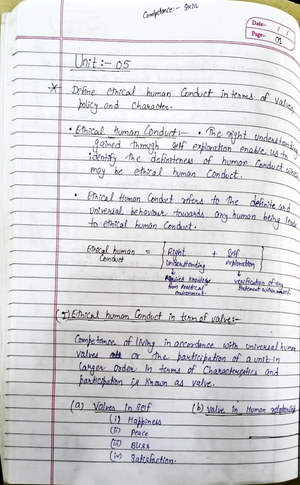 Competence:- Skill
Date:-
Page:- 01
Unit:- 05
* Define ethical human Conduct in terms of values
policy and Character.
• Ethical Human Conduct:- • The right understanding
gained through self exploration enable us to
identify the definiteness of human Conduct which
may be ethical human Conduct.
• Ethical Human Conduct refers to the definite and
universal behaviour towards any human being leads
to ethical human Conduct.
Ethical human Conduct = Right understanding + Self exploration
knowledge from Practical environment
verification of any statement within
(I) Ethical human Conduct in term of value:-
Competence of living in accordance with universal human
values or the participation of a unit in
larger order in terms of Characteristics and
participation is Known as value.
(a) Values in Self (b) Value in Human relationship
(i) Happiness
(ii) Peace
(iii) Bliss
(iv) Satisfaction.